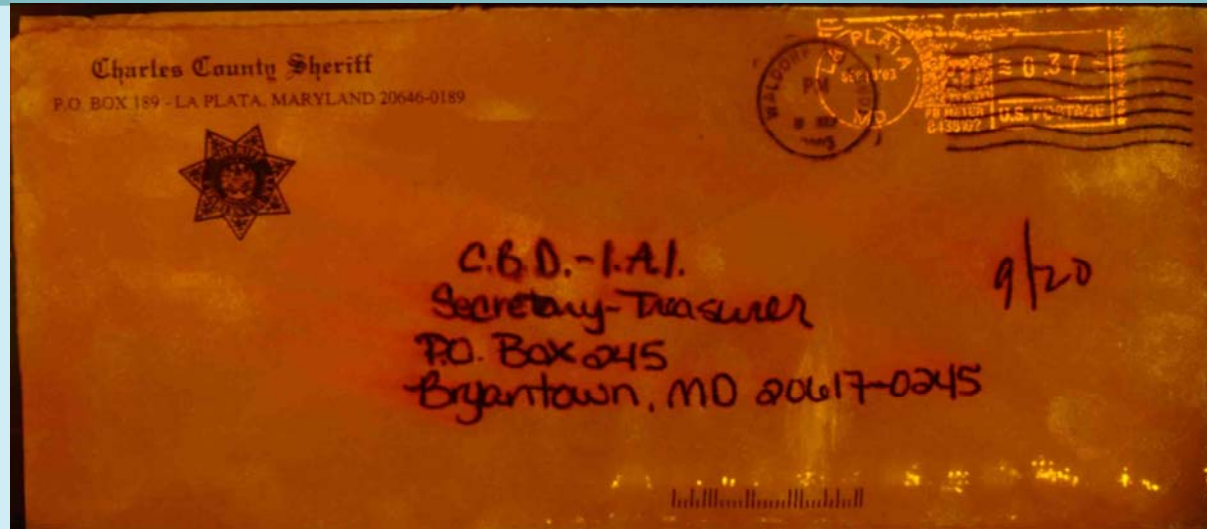 Charles County Sheriff
P.O. BOX 189 - LA PLATA, MARYLAND 20646-0189
WALDORF
PM
2003
LA PLATA
MD
0.37
PB METER
U.S. POSTAGE
C.B.D.-I.A.I.
Secretary-Treasurer
P.O. Box 245
Bryantown, MD 20617-0245
9/20